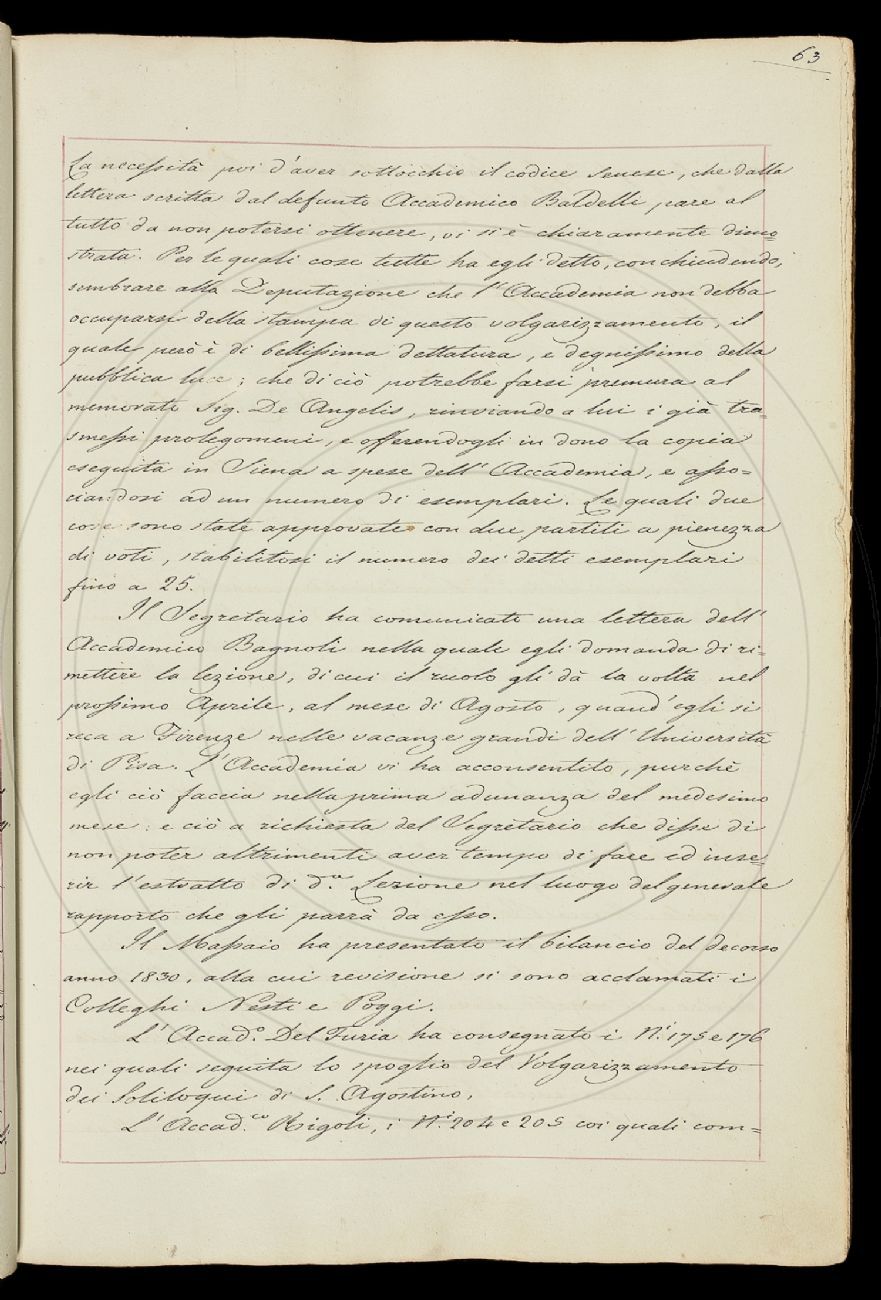 63
La necessità poi d'aver sottocchio il codice Senese, che dalla
lettera scritta dal defunto Accademico Baldelli, pare al
tutto da non potersi ottenere, vi si è chiaramente dimo=
strata. Per le quali cose tutte ha egli detto, conchiudendo,
sembrare alla Deputazione che l'Accademia non debba
occuparsi della stampa di questo volgarizzamento, il
quale però è di bellissima dettatura, e degnissimo della
pubblica luce; che di ciò potrebbe farsi premura al
memorato Sig. De Angelis, rinviando a lui i già tra=
smessi prolegomeni, e offerendogli in dono la copia
eseguita in Siena a spese dell'Accademia, e asso=
ciandosi ad un numero di esemplari. Le quali due
cose sono state approvate con due partiti a pienezza
di voti, stabilitosi il numero dei detti esemplari
fino a 25.
Il Segretario ha comunicato una lettera dell'
Accademico Bagnoli nella quale egli domanda di ri=
mettere la lezione, di cui il ruolo gli dà la volta nel
prossimo Aprile, al mese di Agosto, quand'egli si
reca a Firenze nelle vacanze grandi dell'Università
di Pisa. L'Accademia vi ha acconsentito, purchè
egli ciò faccia nella prima adunanza del medesimo
mese: e ciò a richiesta del Segretario che disse di
non poter altrimenti aver tempo di fare ed inse=
rir l'estratto di d.ta Lezione nel luogo del generale
rapporto che gli parrà da esso.
Il Massaio ha presentato il bilancio del decorso
anno 1830, alla cui revisione si sono acclamati i
Colleghi Nesti e Poggi.
L'Accad.o Del Furia ha consegnato i N.i 175 e 176
nei quali seguita lo spoglio del Volgarizzamento
dei Soliloqui di S. Agostino.
L'Accad.co Rigoli, i N.i 204 e 205 coi quali com=